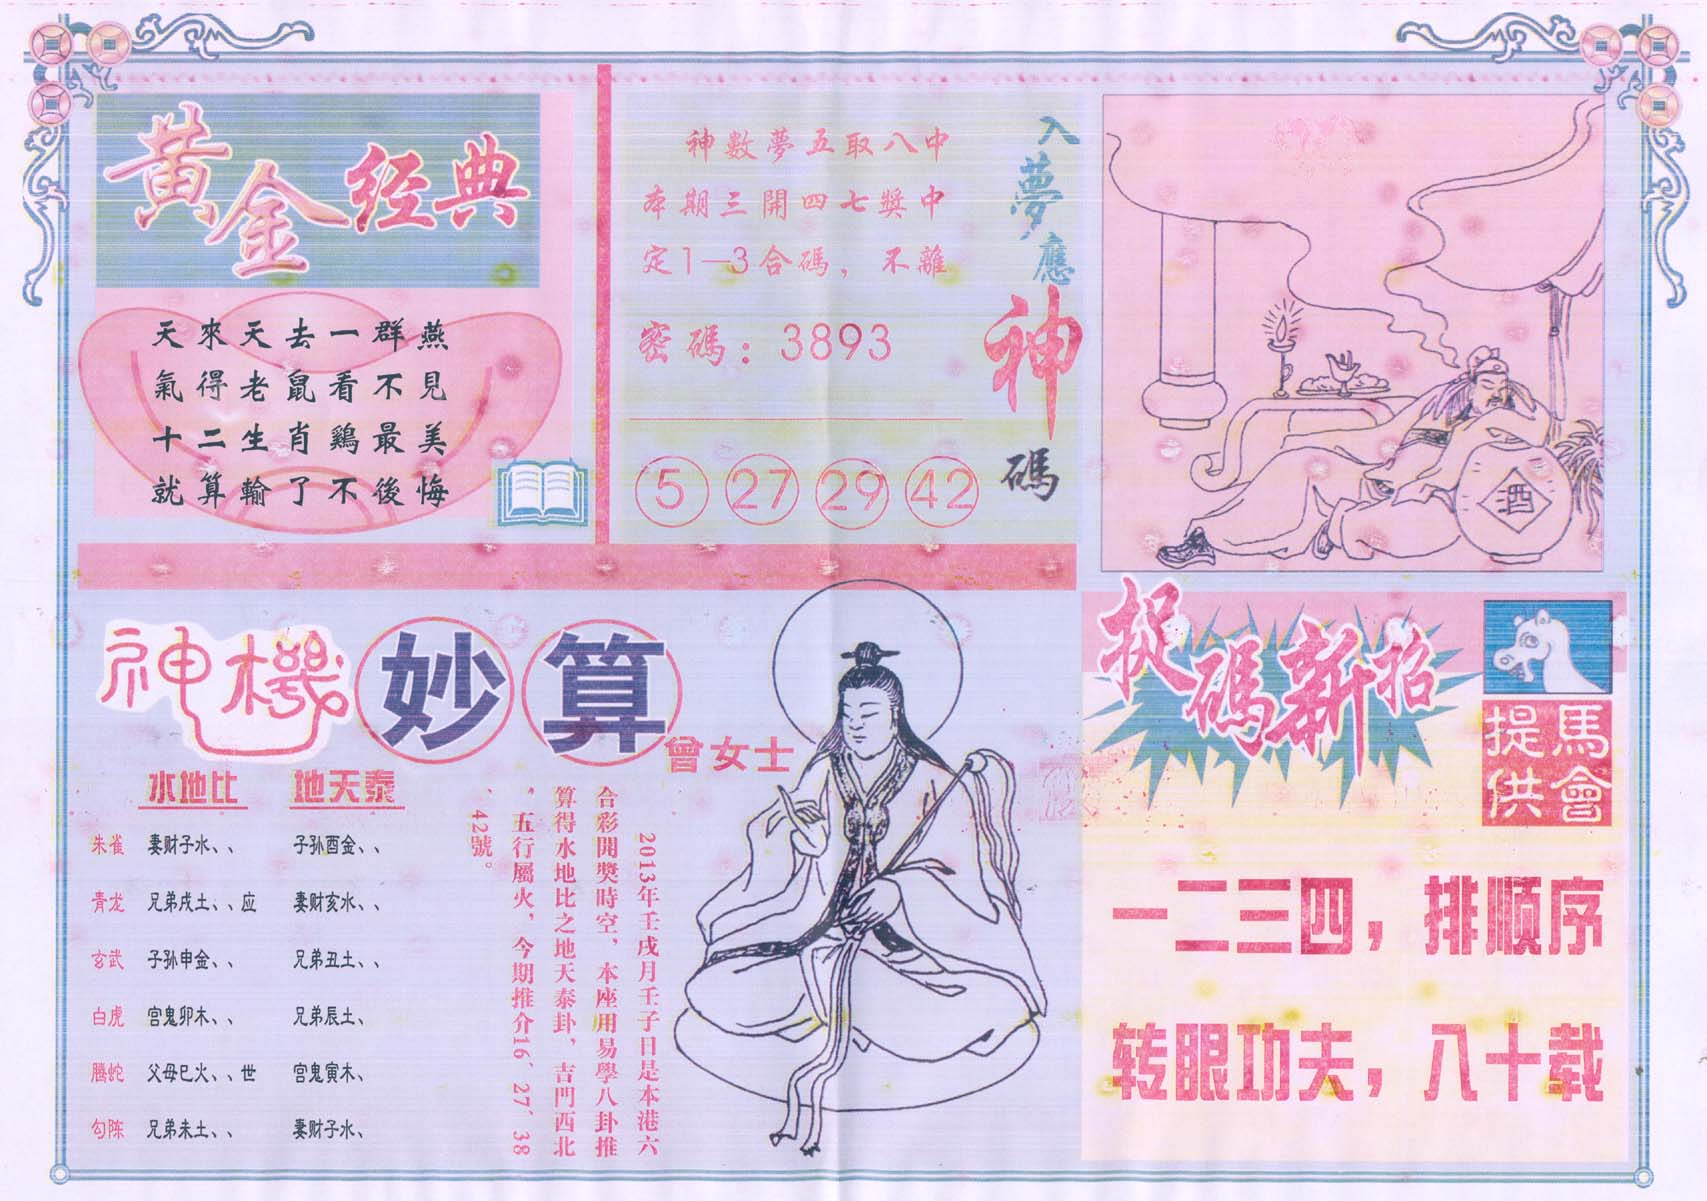 黄金经典
天來天去一群燕
氣得老鼠看不見
十二生肖鷄最美
就算輸了不後悔
入夢應神碼
神數夢五取八中
本期三開四七獎中
定1—3合碼，不離
密碼：3893
5 27 29 42
酒
神機妙算
曾女士
水地比 地天泰
朱雀 妻财子水、、 子孙酉金、、
青龙 兄弟戌土、、应 妻财亥水、、
玄武 子孙申金、、 兄弟丑土、、
白虎 宫鬼卯木、、 兄弟辰土、
腾蛇 父母巳火、、世 宫鬼寅木、
勾陈 兄弟未土、、 妻财子水、
2013年壬戌月壬子日是本港六
合彩開獎時空，本座用易學八卦推
算得水地比之地天泰卦，吉門西北
，五行屬火，今期推介16、27、38
、42號。
捉碼新招
馬會
提供
一二三四，排顺序
转眼功夫，八十载